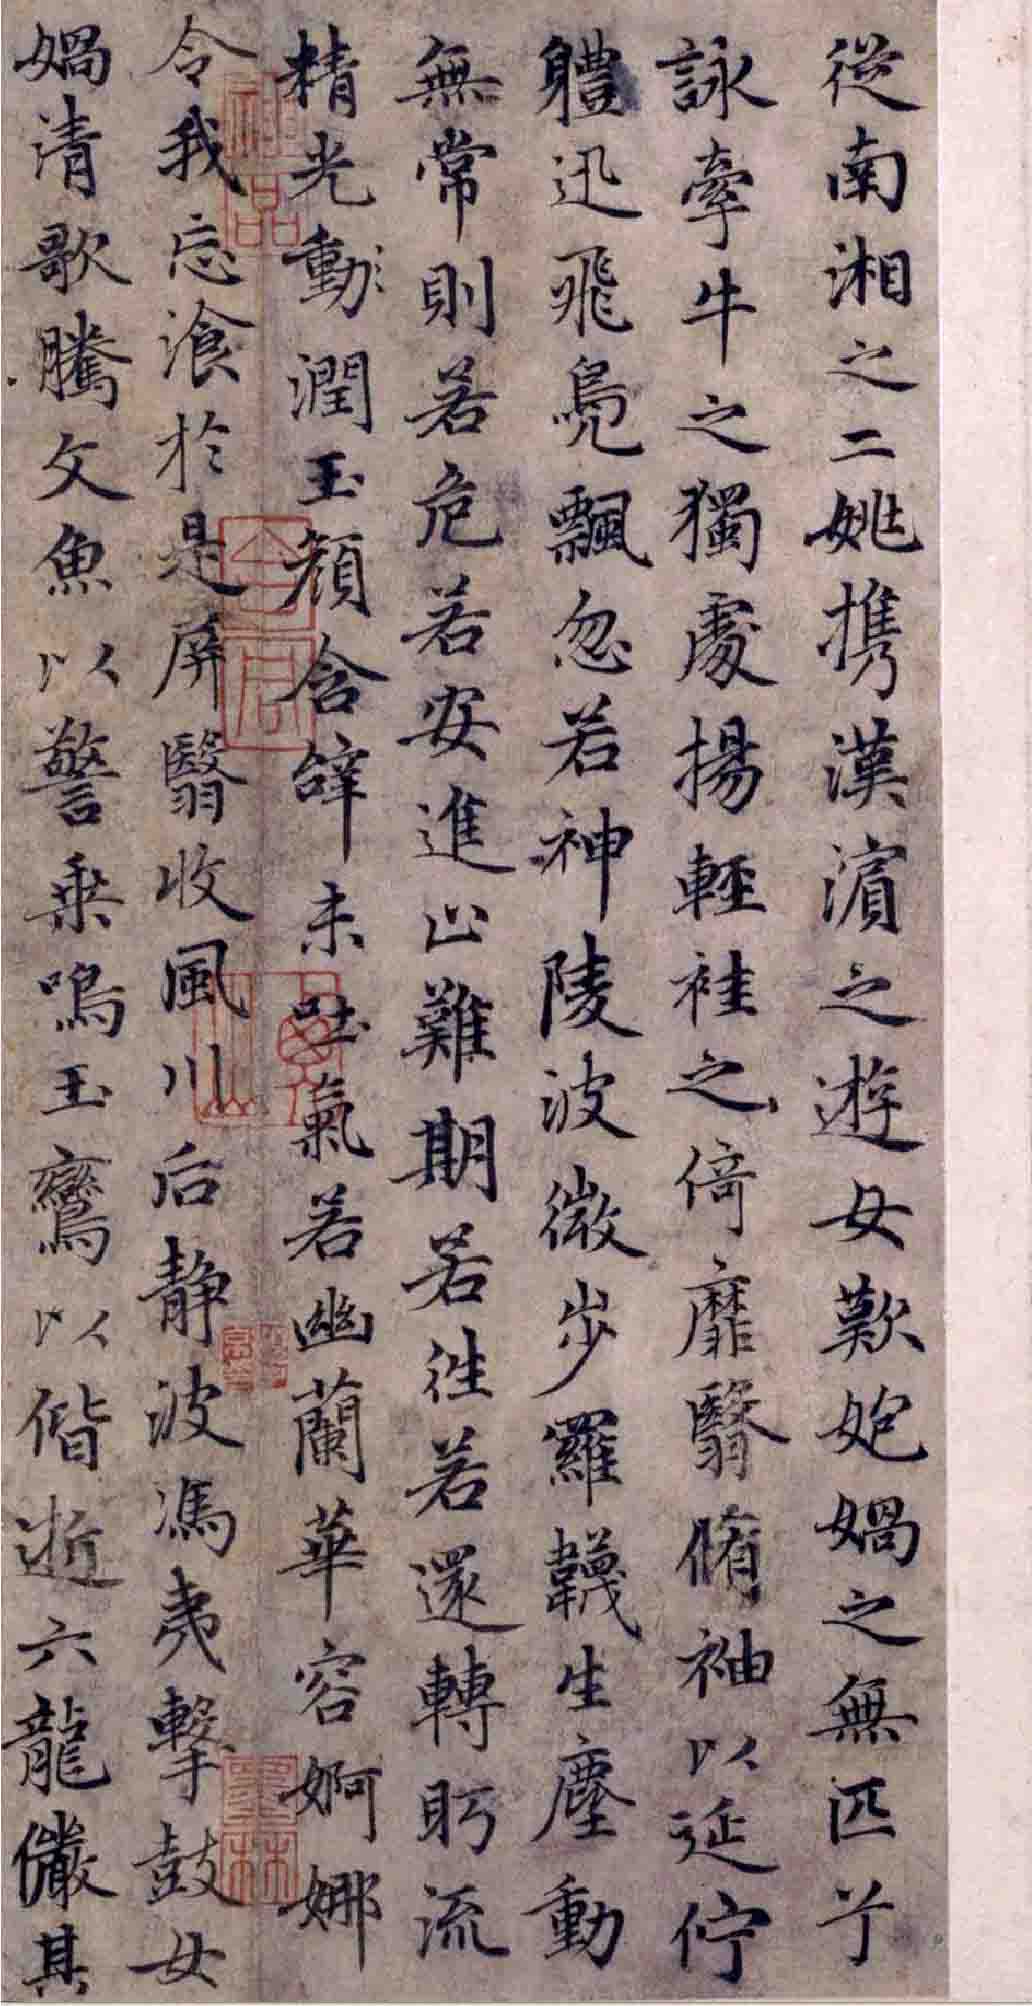 從南湘之二姚携漢濱之遊女歎妑媧之無匹兮
詠牽牛之獨處揚輕袿之倚靡翳脩袖以延佇
軆迅飛鳧飄忽若神陵波微步羅韈生塵動
無常則若危若安進止難期若往若還轉眄流
精光動潤玉顏含辭未吐氣若幽蘭華容婀娜
令我忘飡於是屏翳收風川后静波馮夷擊鼓女
媧清歌騰文魚以警乗鳴玉鸞以偕逝六龍儼其